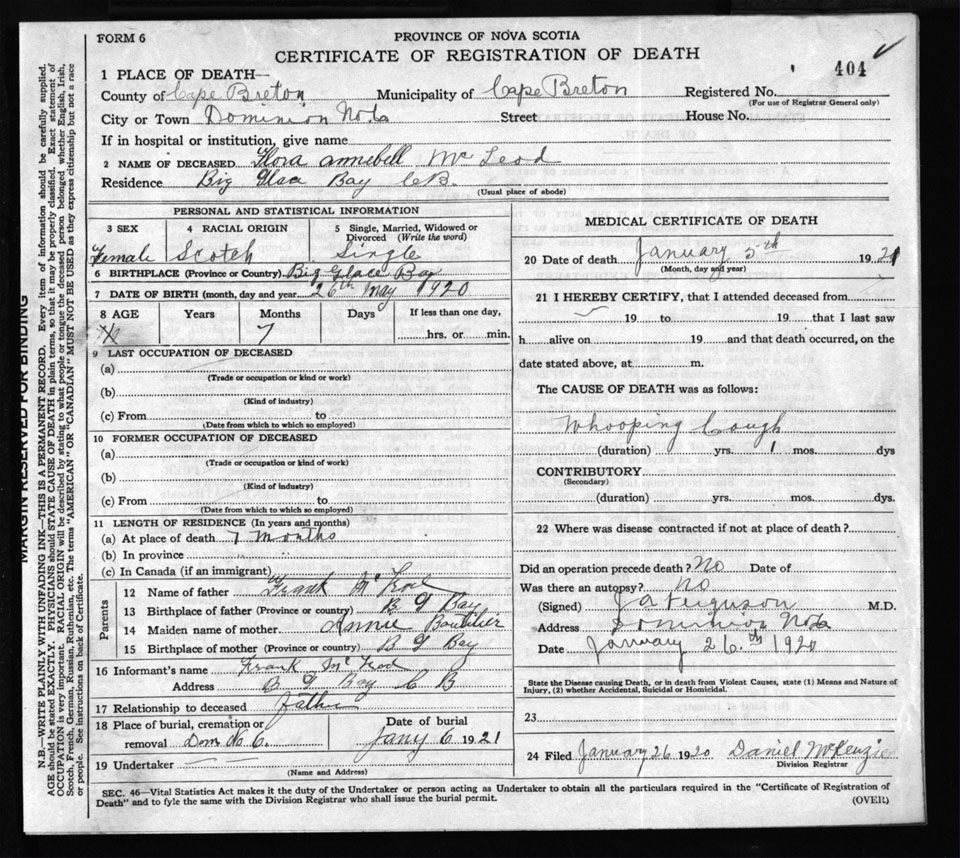 FORM 6
PROVINCE OF NOVA SCOTIA
CERTIFICATE OF REGISTRATION OF DEATH
404
1 PLACE OF DEATH—
County of Cape Breton Municipality of Cape Breton Registered No.
(For use of Registrar General only)
City or Town Dominion No Street House No.
If in hospital or institution, give name
2 NAME OF DECEASED Flora annebell Mc Leod
Residence Big Glace Bay C B.
(Usual place of abode)
PERSONAL AND STATISTICAL INFORMATION
3 SEX 4 RACIAL ORIGIN 5 Single, Married, Widowed or Divorced (Write the word)
Female Scotch Single
6 BIRTHPLACE (Province or Country) Big Glace Bay
7 DATE OF BIRTH (month, day and year) 26th May 1920
8 AGE Years Months Days If less than one day,
7 hrs. or min.
9 LAST OCCUPATION OF DECEASED
(a)
(Trade or occupation or kind or work)
(b)
(Kind of industry)
(c) From to
(Date from which to which so employed)
10 FORMER OCCUPATION OF DECEASED
(a)
(Trade or occupation or kind of work)
(b)
(Kind of industry)
(c) From to
(Date from which to which so employed)
11 LENGTH OF RESIDENCE (In years and months)
(a) At place of death 7 months
(b) In province
(c) In Canada (if an immigrant)
Parents
12 Name of father Frank Mc Leod
13 Birthplace of father (Province or country) B G Bay
14 Maiden name of mother Annie Boutilier
15 Birthplace of mother (Province or country) B G Bay
16 Informant's name Frank Mc Leod
Address B G Bay C B
17 Relationship to deceased father
18 Place of burial, cremation or removal Dom No 6. Date of burial Jany 6 1921
19 Undertaker
(Name and Address)
MEDICAL CERTIFICATE OF DEATH
20 Date of death January 5th 1921
(Month, day and year)
21 I HEREBY CERTIFY, that I attended deceased from
19 to 19 that I last saw
h alive on 19 and that death occurred, on the
date stated above, at m.
The CAUSE OF DEATH was as follows:
Whooping Cough
(duration) yrs. 1 mos. dys
CONTRIBUTORY
(Secondary)
(duration) yrs. mos. dys.
22 Where was disease contracted if not at place of death?
Did an operation precede death? No Date of
Was there an autopsy? No
(Signed) J A Ferguson M.D.
Address Dominion No
Date January 26th 1920
State the Disease causing Death, or in death from Violent Causes, state (1) Means and Nature of Injury, (2) whether Accidental, Suicidal or Homicidal.
23
24 Filed January 26 1920 Daniel McKenzie
Division Registrar
SEC. 46—Vital Statistics Act makes it the duty of the Undertaker or person acting as Undertaker to obtain all the particulars required in the "Certificate of Registration of Death" and to fyle the same with the Division Registrar who shall issue the burial permit.
(OVER)
MARGIN RESERVED FOR BINDING
N.B.—WRITE PLAINLY WITH UNFADING INK—THIS IS A PERMANENT RECORD. Every item of information should be carefully supplied.
AGE should be stated EXACTLY. PHYSICIANS should STATE CAUSE OF DEATH in plain terms, so that it may be properly classified. Exact statement of
OCCUPATION is very important. RACIAL ORIGIN will be described by stating to what people or tongue the deceased person belonged, whether English, Irish,
Scotch, French, German, Russian, Ruthenian, etc. The terms "AMERICAN" OR "CANADIAN" MUST NOT BE USED as they express citizenship but not a race
or people. See instructions on back of Certificate.